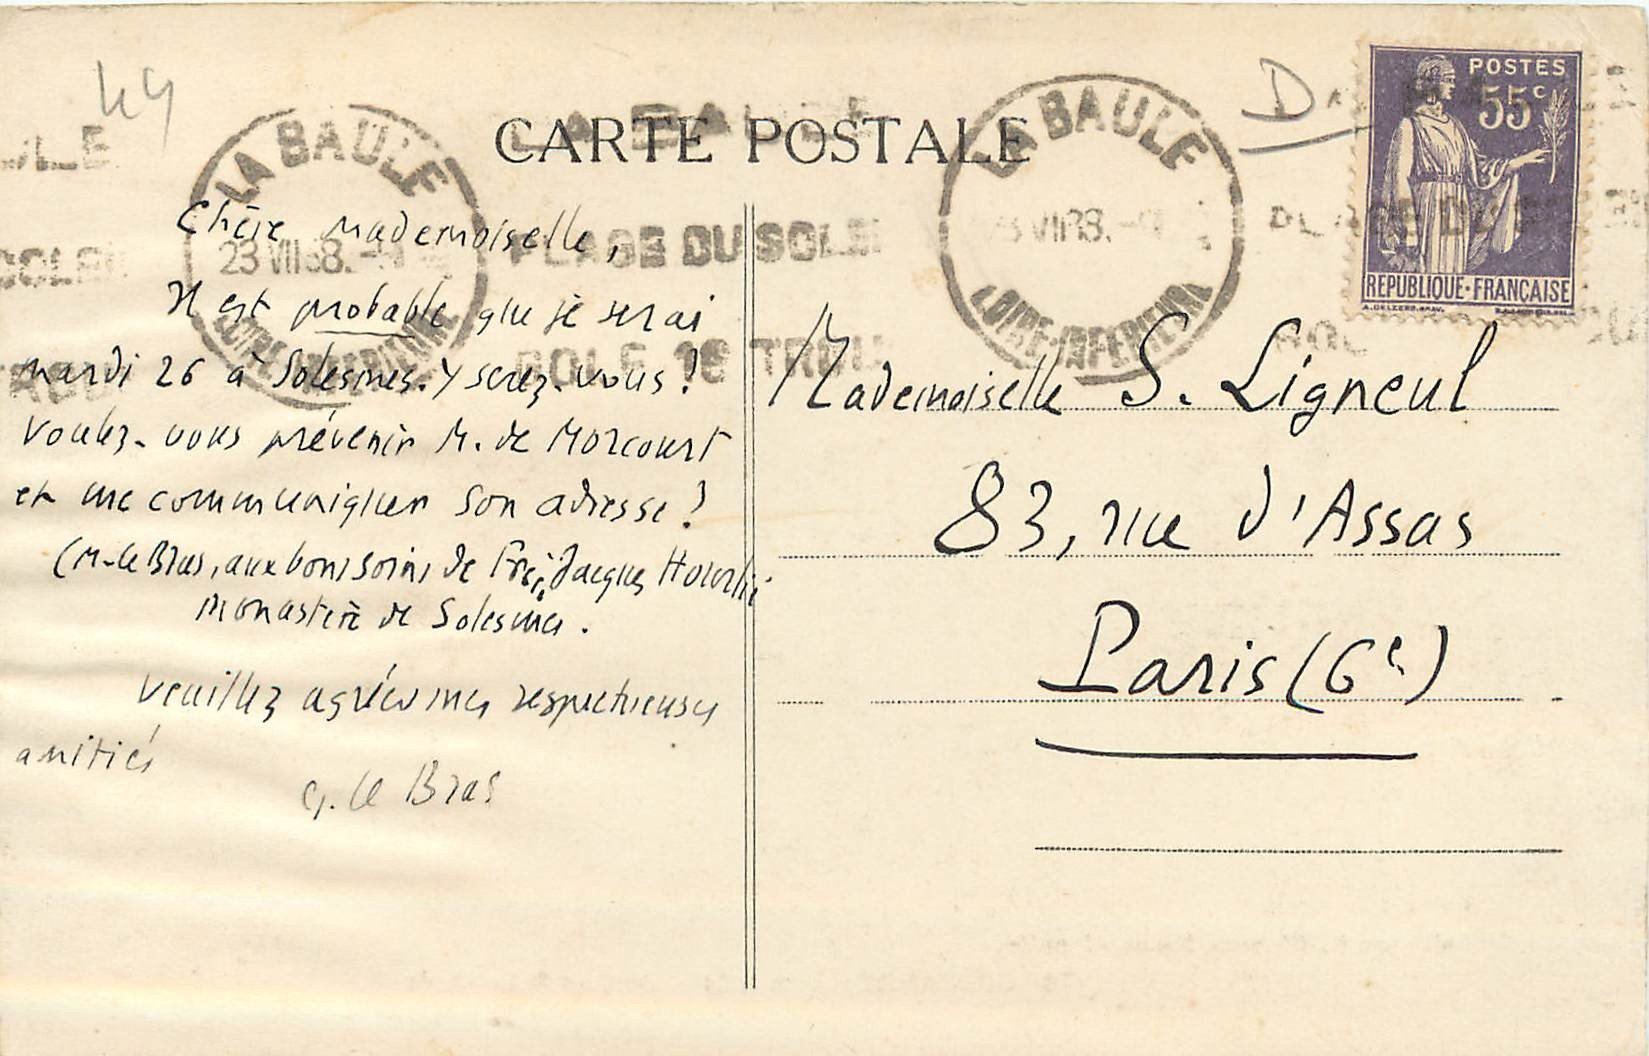 49
LA BAULE
23 VII 38
LOIRE-INFERIEURE
PLAGE DU SOLEIL
GOLF 18 TROUS
CARTE POSTALE
LA BAULE
LOIRE-INFERIEURE
POSTES
55c
REPUBLIQUE·FRANÇAISE
Chère Mademoiselle,
Il est probable que je serai
mardi 26 à Solesmes. Y serez-vous?
Voulez-vous prévenir M. de Morcourt
et me communiquer son adresse?
(M. le Bras, aux bons soins de Frère Jacques
Monastère de Solesmes.
Veuillez agréer mes respectueuses
amitiés
G. le Bras
Mademoiselle S. Ligneul
83, rue d'Assas
Paris (6e)